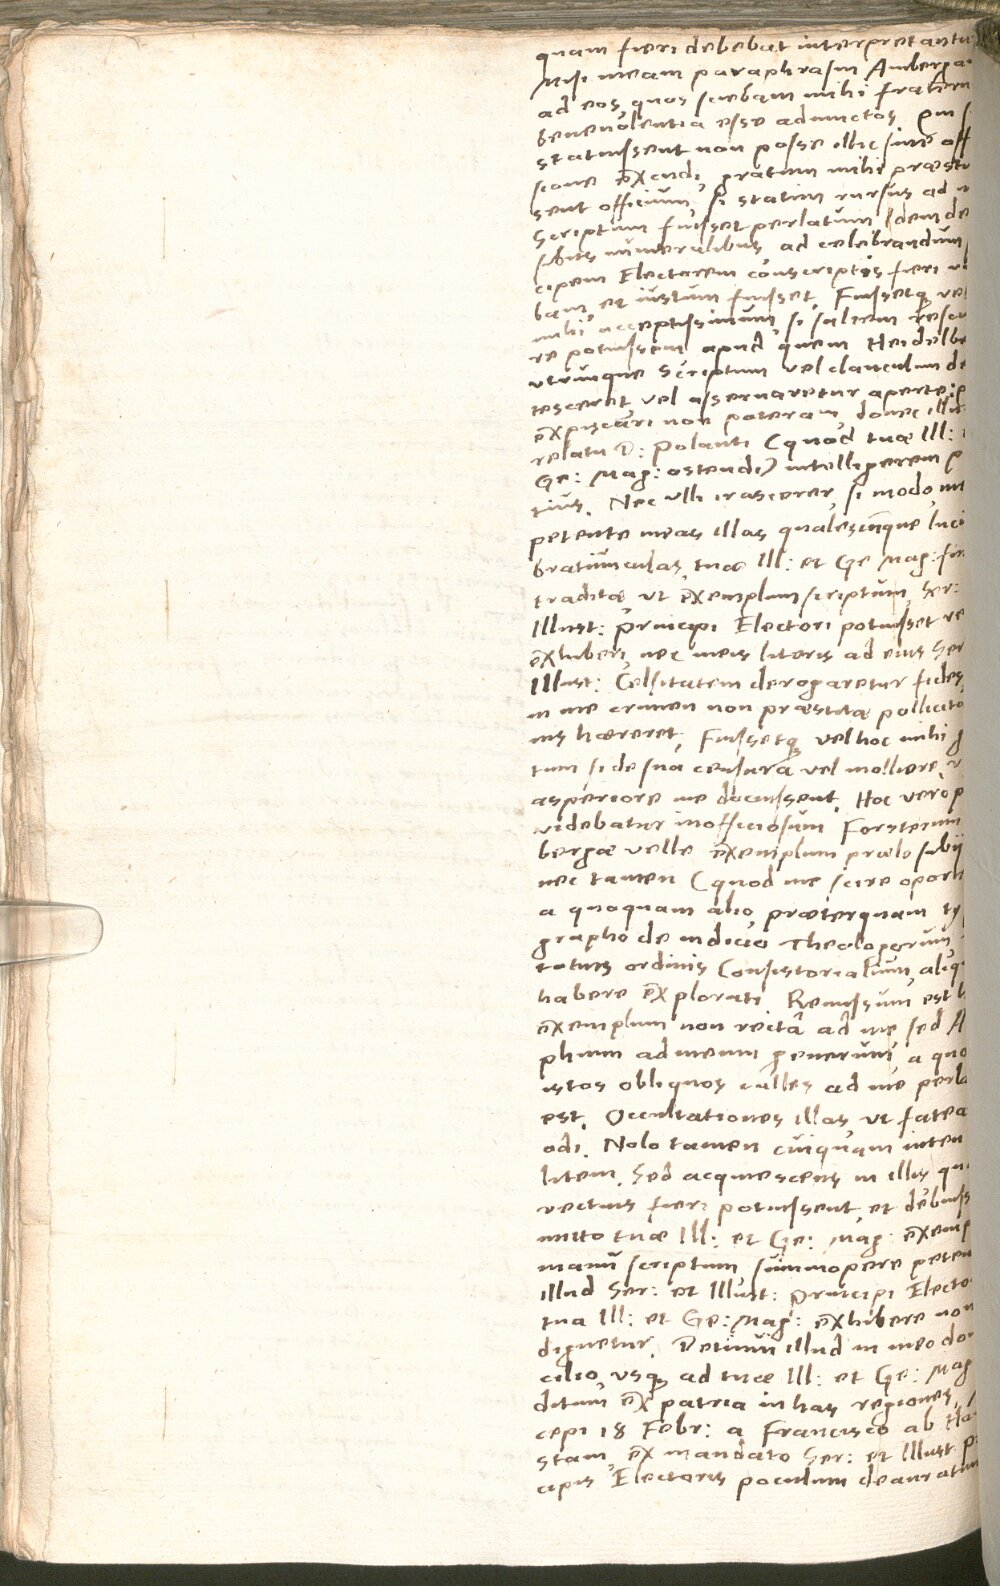 quam fieri debebat interpretantu
Misi meam paraphrasin Amberga
ad eos quos sciebam mihi fratern
benevolentia esse adiunctos. Qui s
statuissent non posse illic sine off
sione excudi, gratum mihi præsti
sent officium, si statim rursus ad
Scriptum fuisset perlatum. Idem de
subitis numeralibus, ad celebrandum
cipem Electorem conscriptis fieri
bam, et iustum fuisset. Fuissetq vel
mihi acceptissimum, si saltem resci
re potuissem apud quem Heidelbe
utrunque Scriptum vel clanculum de
tesceret vel asservaretur aperte:
expiscari non poteram, donec illu
relatu D: Polanti (quod tuæ Ill:
Ge: Mag: ostendi) intelligerem p
tius. Nec ulli irascerer, si modo, me
petente meas illas qualescunque lucu
bratiunculas, tuæ Ill: et Ge Mag:
traditæ, ut exemplum scriptum, Ser:
Illust: Principi Electori potuisset re
exhiberi, nec meis literis ad eius Ser
Illust: Celsitatem derogaretur fides,
in me crimen non præstitæ pollicita
nis hæreret. Fuissetq vel hoc mihi g
tum si de sua censura vel molliere, v
asperiore me docuissent. Hoc vero p
videbatur inofficiosum Forsterum
bergæ velle exemplum prælo subij
nec tamen (quod me scire oport
a quoquam alio, præterquam ty
grapho de indicio Theologorum
totius ordinis Consistorialium, aliq
habere explorati. Remissum est
exemplum non recta ad me sed A
phum ad meum generum, a quo
istos obliquos calles ad me perla
est. Occultationes illas, ut fatea
odi. Nolo tamen cuiquam inten
litem. Sed acquiescens in illis qu
rectius fieri potuissent, et debuis
mitto tuæ Ill: et Ge: Mag: exemp
manu scriptum summopere peten
illud Ser: et Illust: Principi Electo
tua Ill: et Ge: Mag: exhibere non
dignetur. Detinui illud in meo do
cilio, usq ad tuæ Ill: et Ge: Mag
ditum ex patria in has regiones.
cepi 18 Febr: a Francisco ab Ha
stam, ex mandato Ser: et Illust P
cipis Electoris poculum deauratum